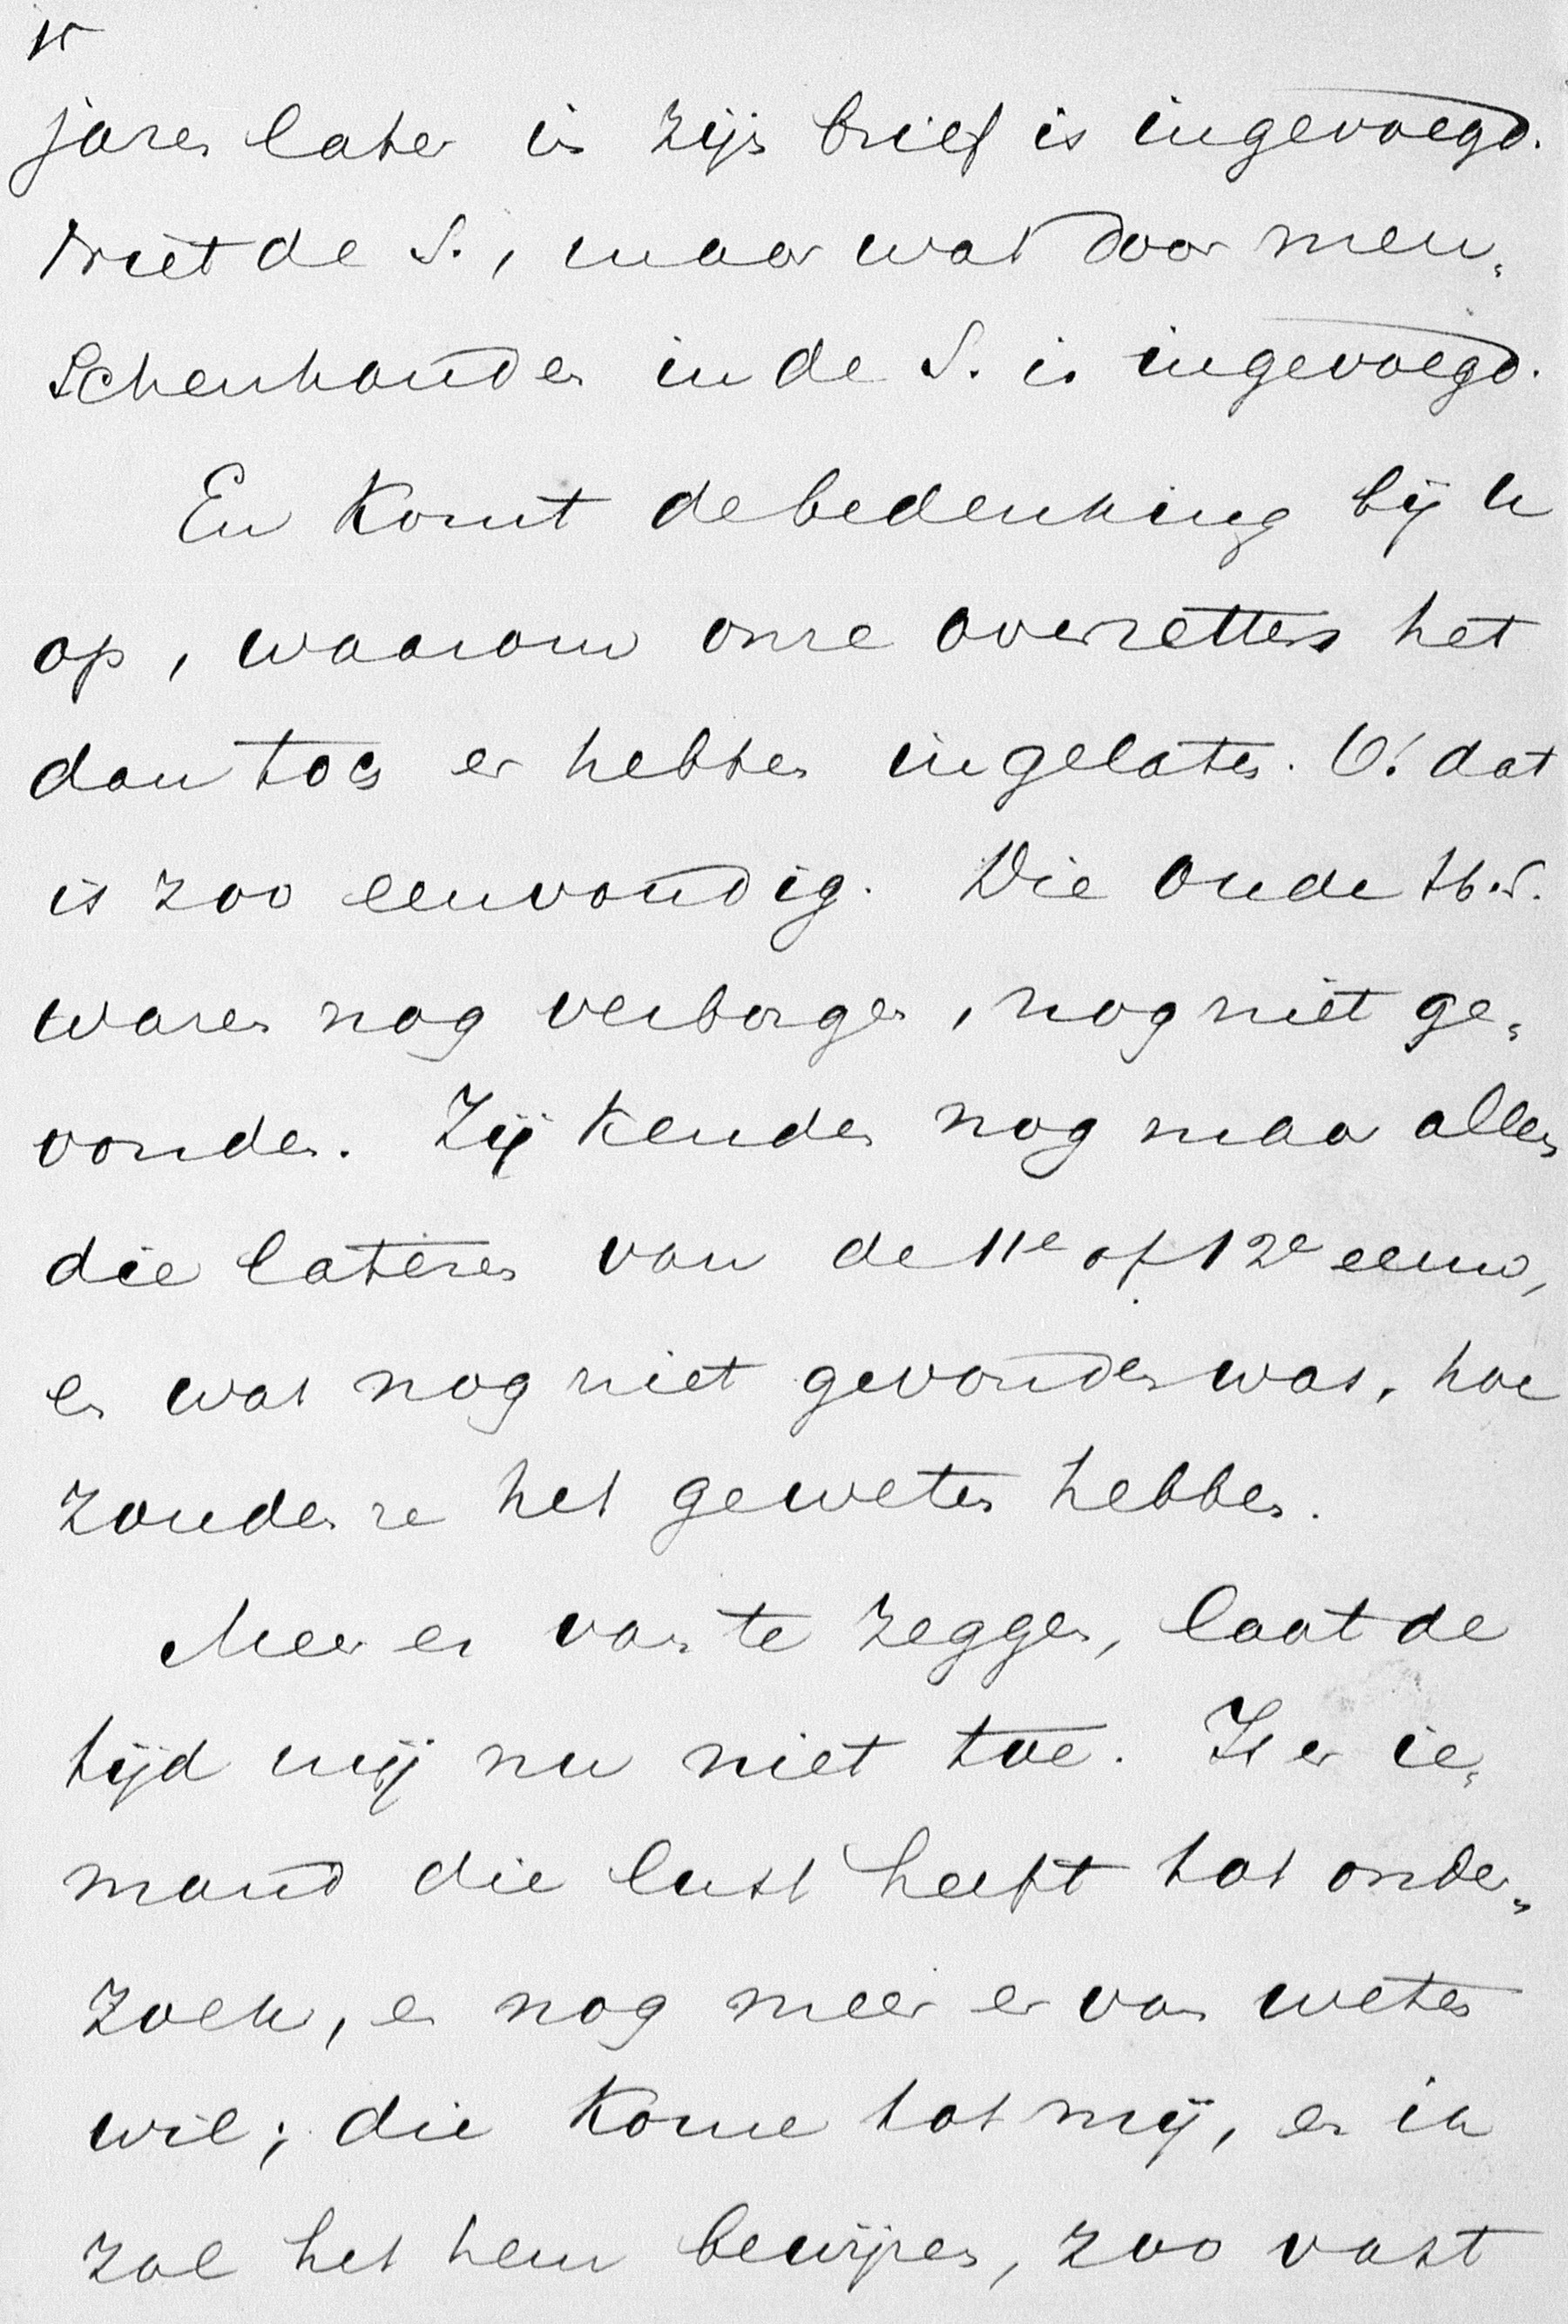 15
jaren later in zijn brief is ingevoegd.
Niet de S., maar wat door men„
schenhanden in de S. is ingevoegd.
En komt de bedenking bij u
op, waarom onze overzetters het
dan toch er hebben ingelaten. O! dat
is zoo eenvoudig. Die oude Hss.
waren nog verborgen, nog niet ge„
vonden. Zij kenden nog maar alleen
die lateren van de 11e of 12e eeuw,
en wat nog niet gevonden was, hoe
zouden ze het geweten hebben.
Meer er van te zeggen, laat de
tijd mij nu niet toe. Is er ie„
mand die lust heeft tot onder„
zoek, en nog meer er van weten
wil; die kome tot mij, en ik
zal het hem bewijzen, zoo vast